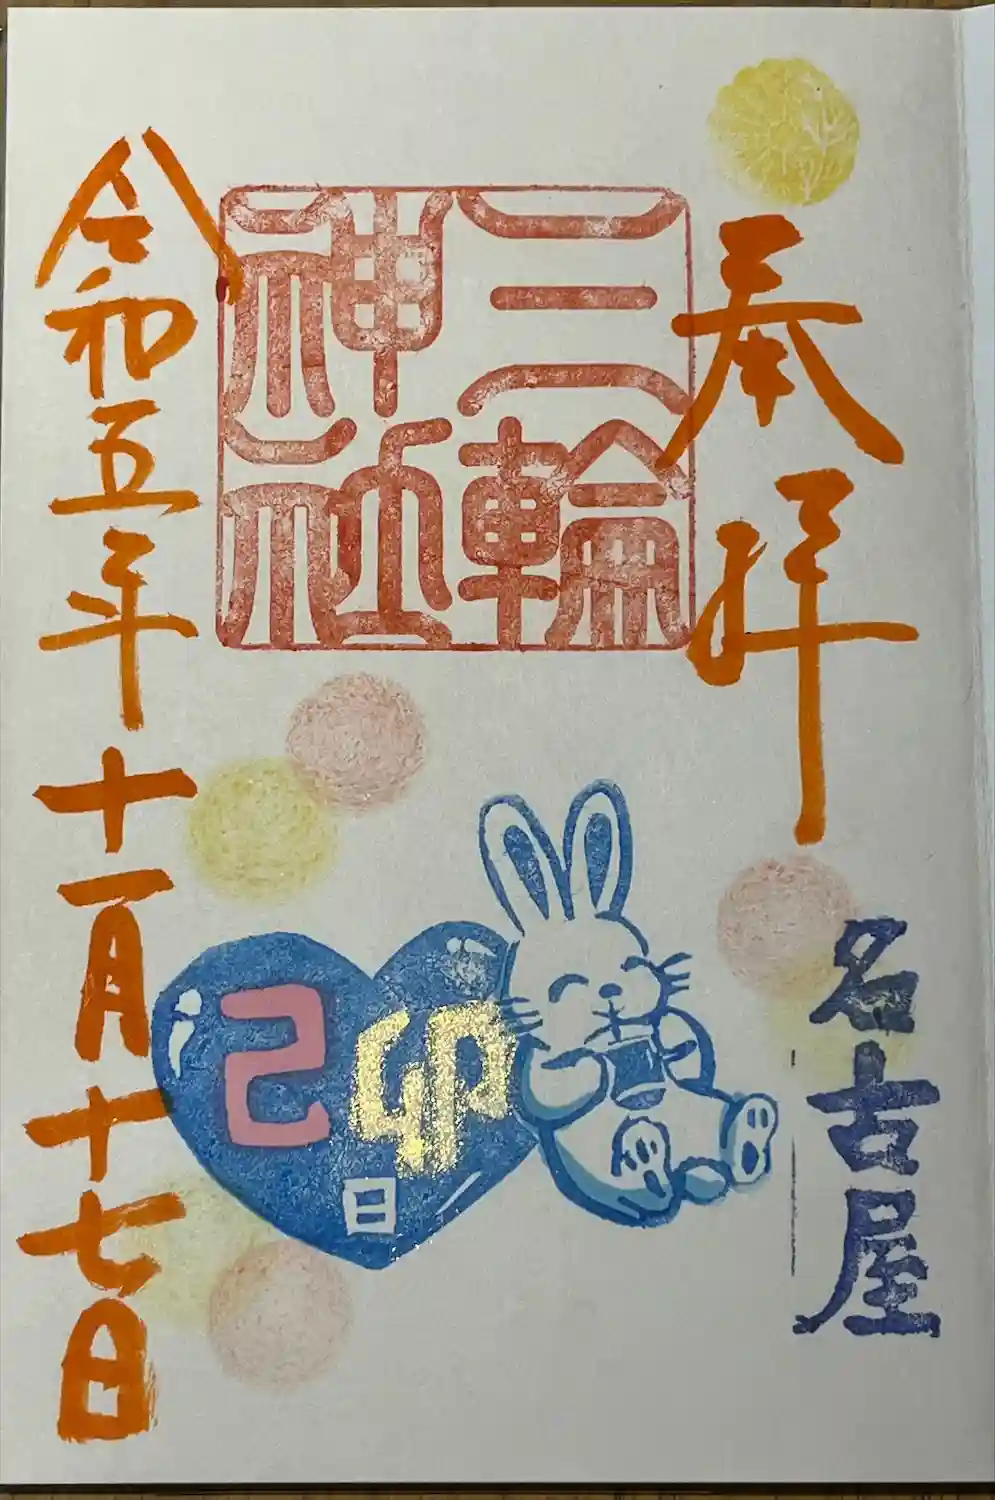 奉拝
名古屋
三輪
神社
己卯
日
令和五年十一月十七日